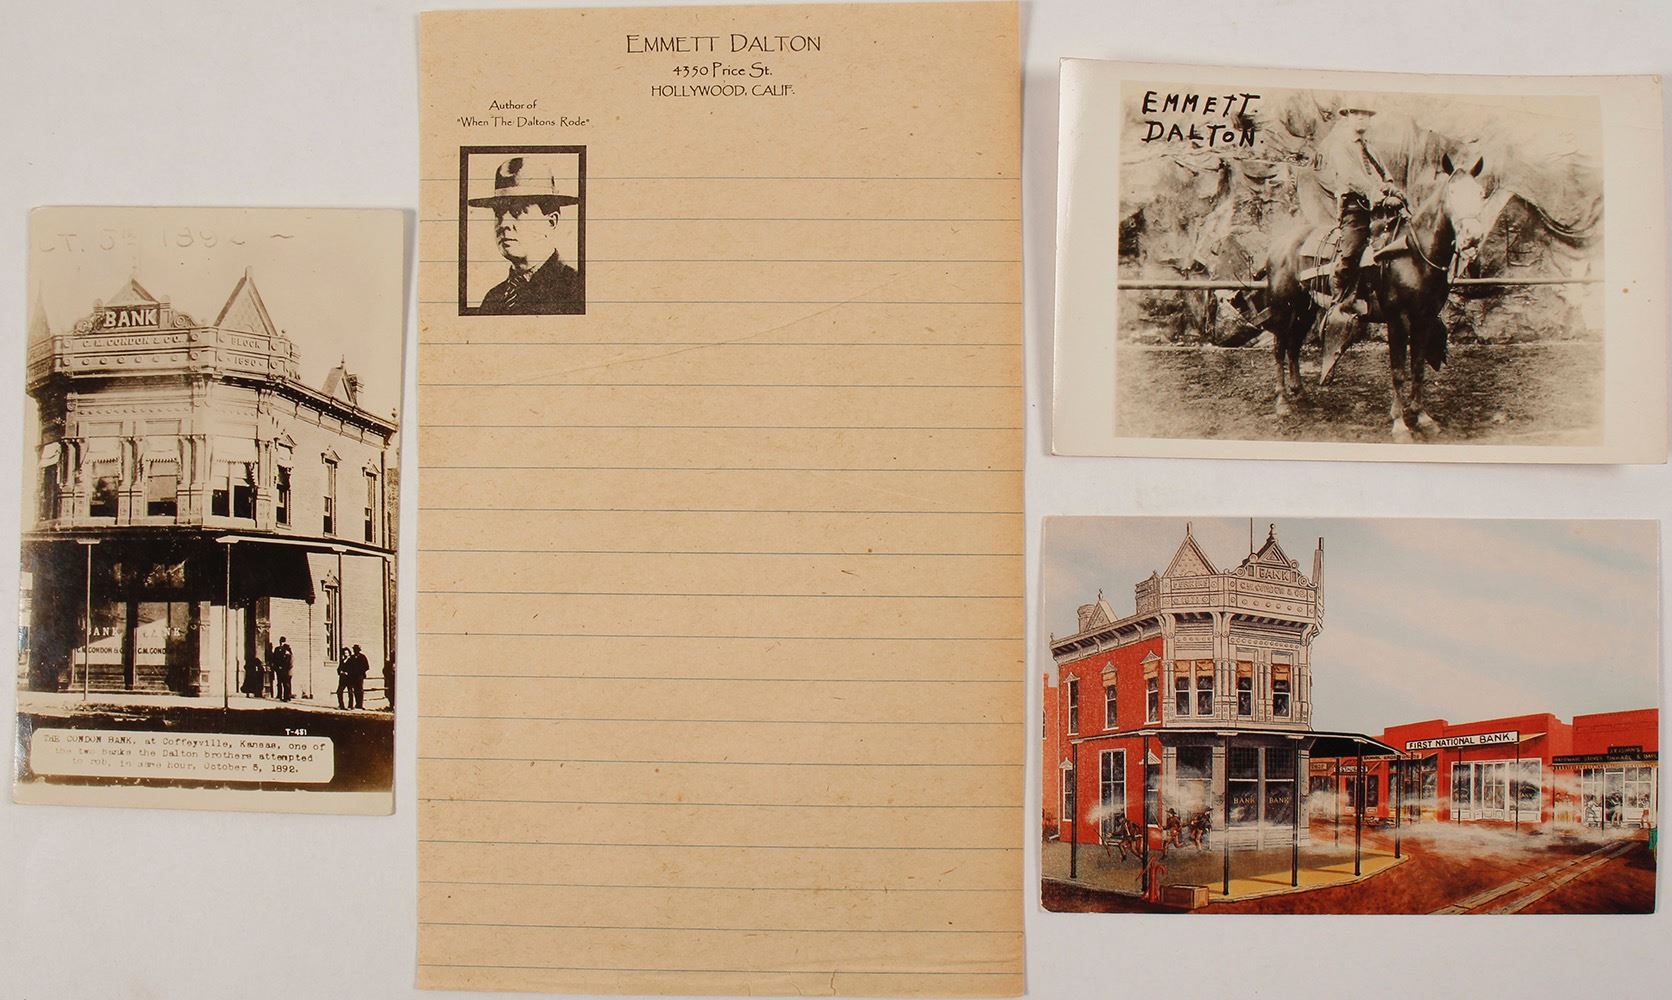 CT. 5th 1892
BANK
C.M. CONDON & CO.
BLOCK
1890
BANK BANK
C.M. CONDON & CO. C.M. CONDON
T-451
THE CONDON BANK, at Coffeyville, Kansas, one of
the two banks the Dalton brothers attempted
to rob, in same hour, October 5, 1892.
EMMETT DALTON
4350 Price St.
HOLLYWOOD, CALIF.
Author of
"When The Daltons Rode"
EMMETT
DALTON.
BANK
C.M. CONDON & CO
FIRST NATIONAL BANK.
BANK BANK